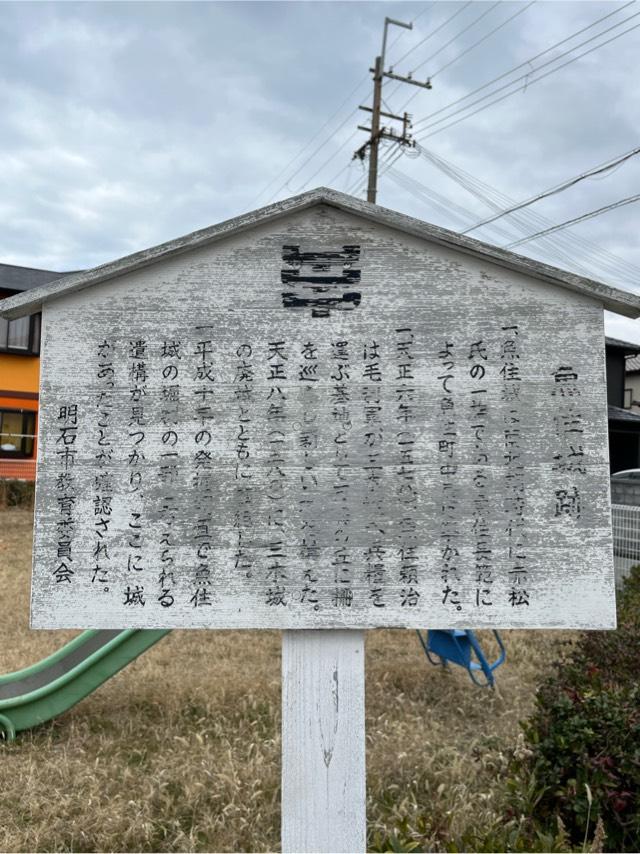 魚住城跡
一魚住城 南北朝時代に赤松
氏の一 で 魚住長範に
よって魚住町中尾に か れた。
一天正六年(一五七八)魚住頼治
は毛利軍が三木 兵糧を
運ぶ基地として の丘に柵
を巡 構えた。
天正八年(一五八〇)に三木城
の廃城とともに した。
一平成十年の発掘調査で魚住
城の堀 の一部 考えられる
遺構が見つかり、ここに城
があったことが確認された。
明石市教育委員会